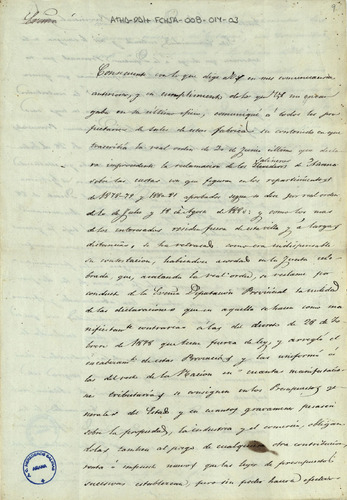 ATHA-DAH-FCHSA-008-014-03
Consecuente con lo que dige a VS. en mis comunicaciones
anteriores, y en cumplimiento de lo que VS. me encar
gaba en su último oficio, comuniqué a todos los pro
pietarios de Salinas de estas fabricas su contenido en que
trascribia la real orden de 30 de Junio último que decla
ra improcedente la reclamacion de los Salineros de Añana
sobre las cuotas con que figuran en los repartimientos
de 1878-79 y 1880-81 aprobados segun se dice por real orden
de 10 de Julio y 19 de Agosto de 1880; y como los mas
de los interesados residen fuera de esta villa y a largas
distancias, se ha retrasado como era indispensable
su contestacion, habiendose acordado en la Junta cele
brada que, acatando la real orden, se reclame por
conducto de la Excma Diputación Provincial la nulidad
de las declaraciones que en aquella se hacen como ma
nifiestamente contrarias a las del decreto de 28 de Fe
brero de 1878 que tiene fuerza de ley, y arregló el
encabezamiento de estas Provincias y las uniformó
a las del resto de la Nacion en cuantas manifestacio
nes tributarias se consignen en los Presupuestos ge
nerales del Estado y en cuantos gravamenes pesaren
sobre la propiedad, la industria y el comercio, obligan
dolas tambien al pago de cualquiera otra contribucion,
renta o impuesto nuevo que las leyes de presupuestos
sucesivas establezcan, pero sin poder hacer efectivas